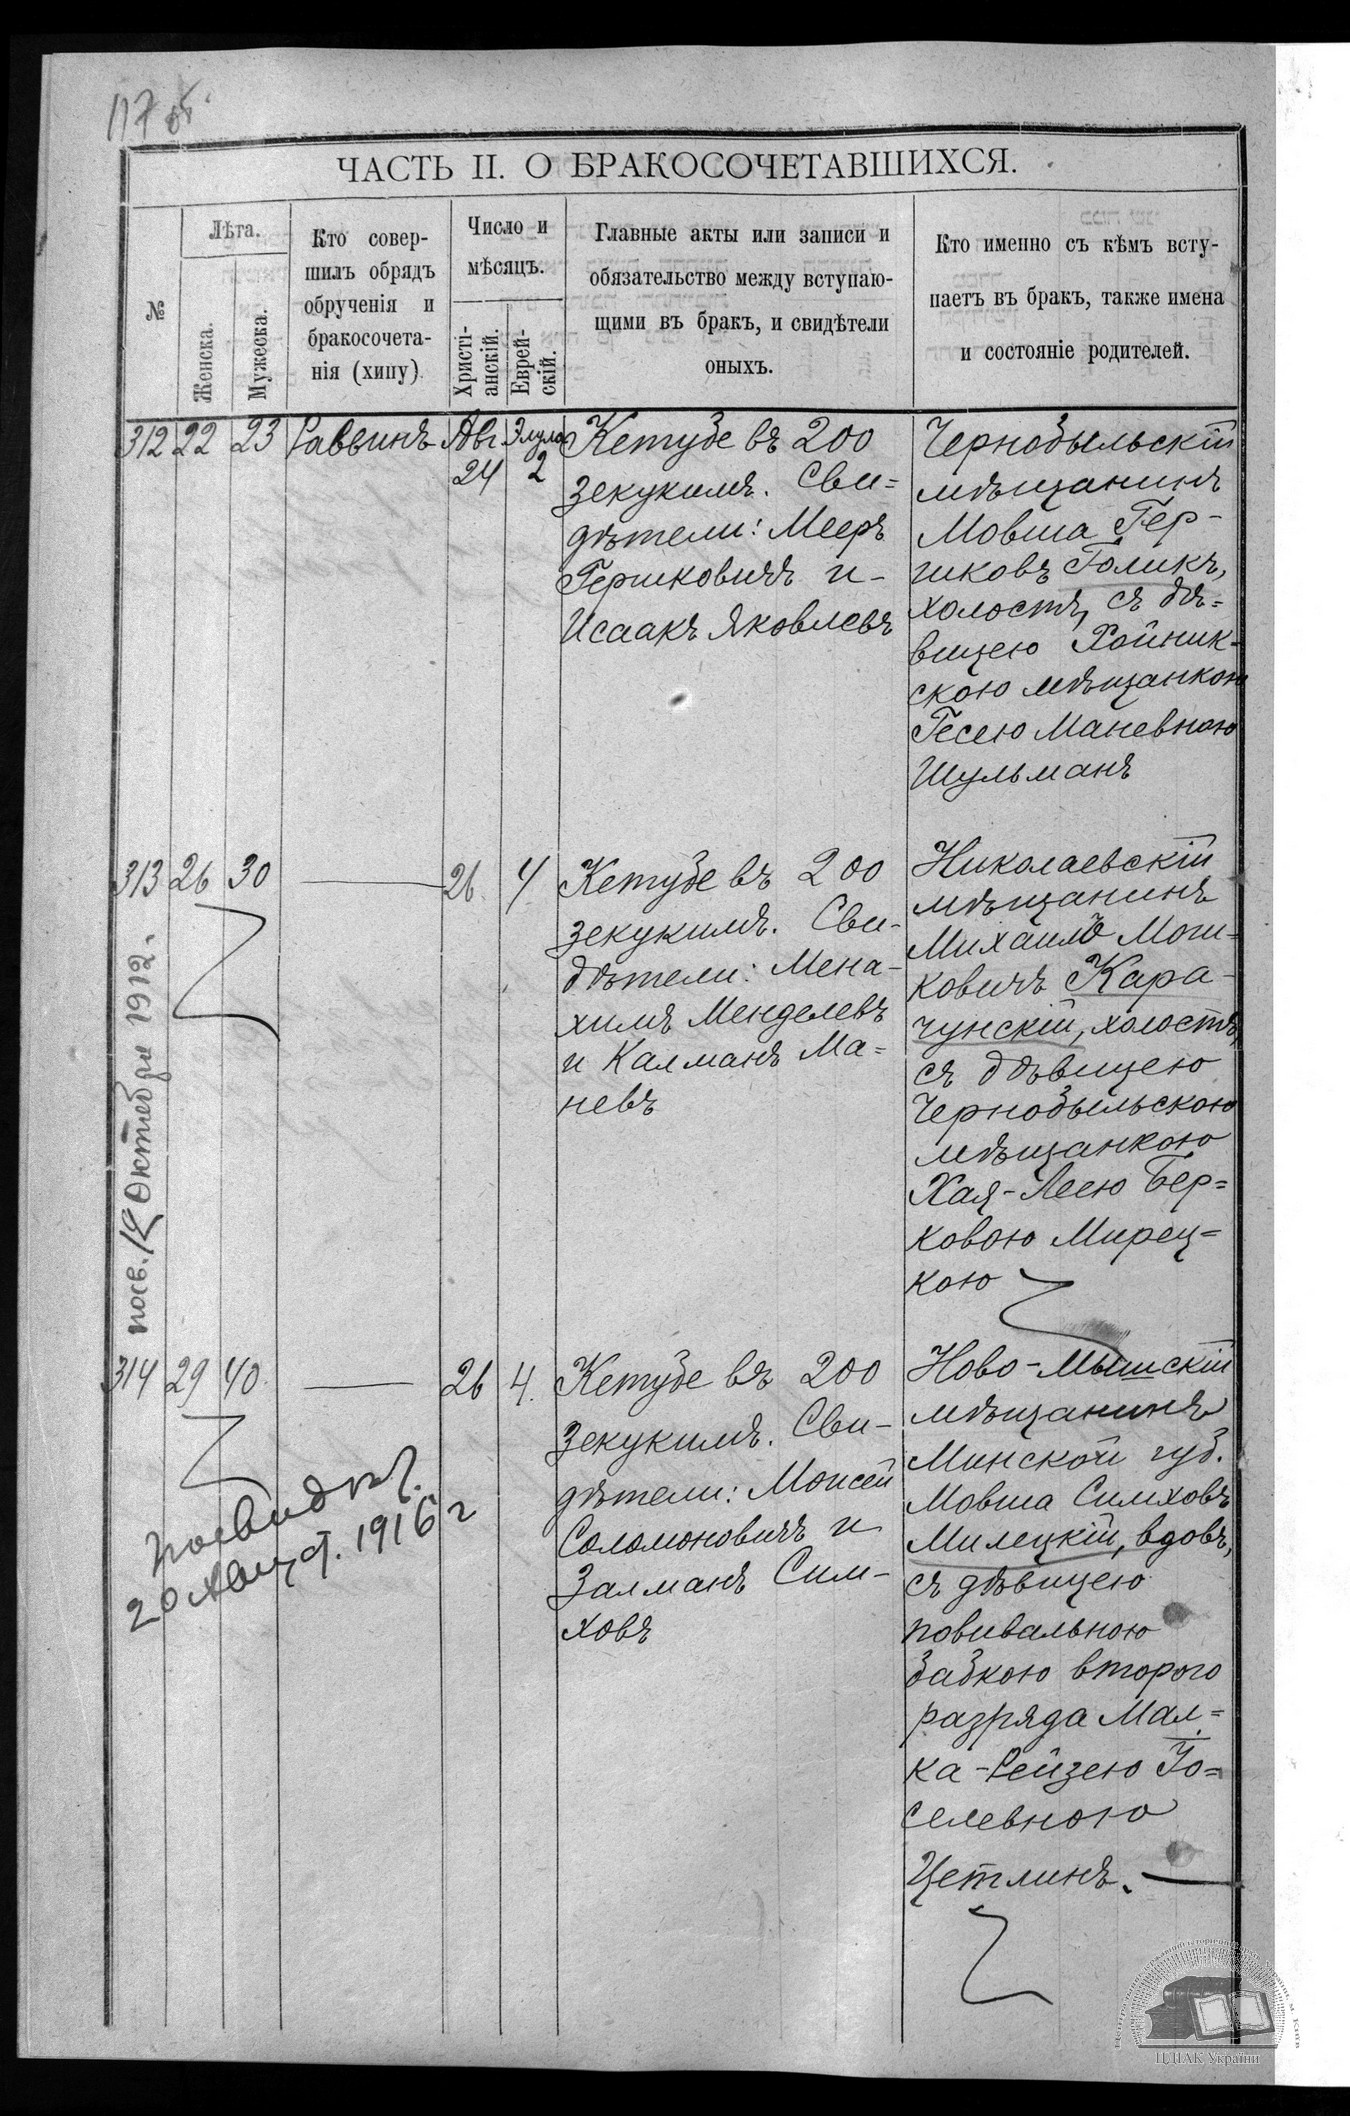 117 об.
ЧАСТЬ II. О БРАКОСОЧЕТАВШИХСЯ.
№
Лѣта.
Женска.
Мужеска.
Кто совер-
шилъ обрядъ
обрученія и
бракосочета-
нія (хипу)
Число и
мѣсяцъ.
Христі-
анскій.
Еврей-
скій.
Главные акты или записи и
обязательство между вступаю-
щими въ бракъ, и свидѣтели
оныхъ.
Кто именно съ кѣмъ всту-
паетъ въ бракъ, также имена
и состояніе родителей.
312 22 23 Раввинъ Авг 24 Элула 2
Кетубе въ 200
зекукимъ. Сви=
дѣтели: Мееръ
Гершковичъ и-
Исаакъ Яковлевъ
Чернобыльскій
мѣщанинъ
Мовша Гер-
шковъ Голикъ,
холостъ, съ дѣ=
вицею Хойник-
скою мѣщанкою
Гесею Маневною
Шульманъ
313 26 30 26 4
Кетубе въ 200
зекукимъ. Сви-
дѣтели: Мена-
химъ Менделевъ
и Калманъ Ма=
невъ
Николаевскій
мѣщанинъ
Михаилъ Мош=
ковичъ Кара-
чунскій, холостъ,
съ дѣвицею
Чернобыльскою
мѣщанкою
Хая-Леею Бер=
ковою Мирец=
кою
посв. 12 Октября 1912.
314 29 40 26 4.
Кетубе въ 200
зекукимъ. Сви-
дѣтели: Моисей
Соломоновичъ и
Залманъ Сим-
ховъ
Ново-Мышскій
мѣщанинъ
Минской губ.
Мовша Симховъ
Милецкій, вдовъ,
съ дѣвицею
повивальною
бабкою второго
разряда Мал=
ка-Рейзею Іо=
селевною
Цетлинъ.
20 1916 г
ЦДІАК України